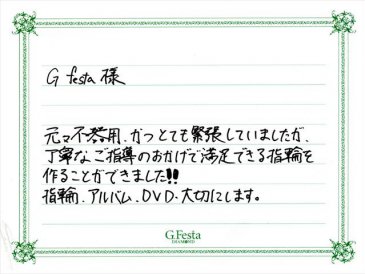 G festa 様
元々不器用、かつとても緊張していましたが、
丁寧なご指導のおかげで満足できる指輪を
作ることができました!!
指輪、アルバム、DVD、大切にします。
G.Festa
DIAMOND